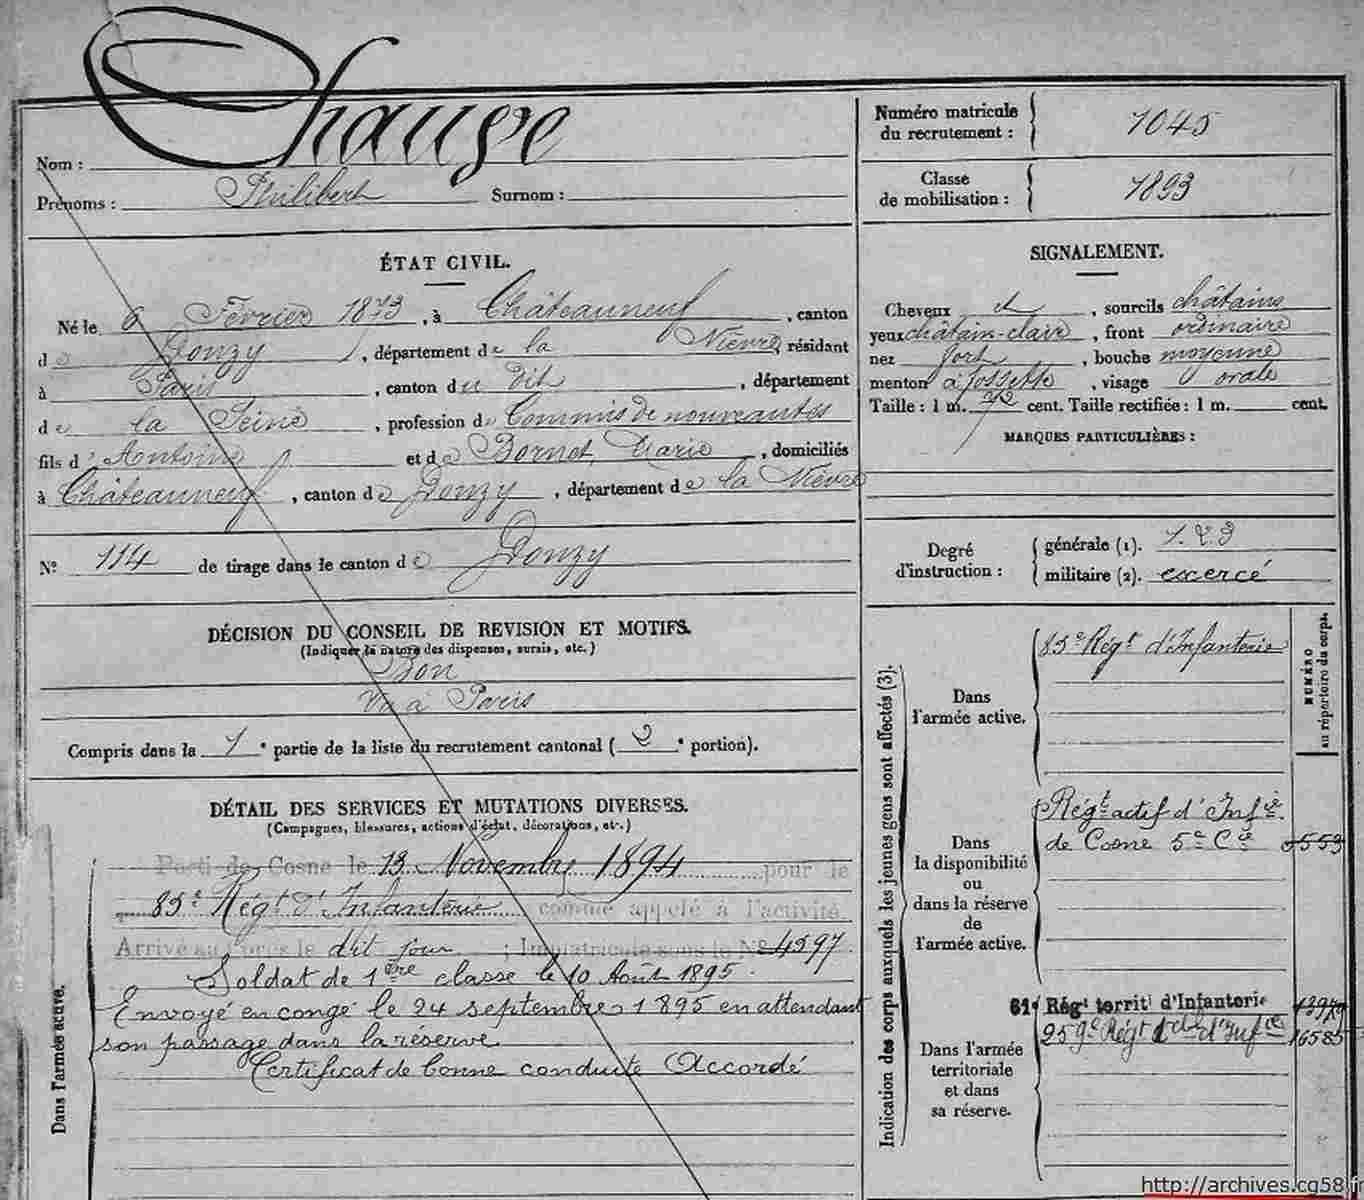 Nom : Chauge
Prénoms : Philibert Surnom :
Numéro matricule du recrutement : 1045
Classe de mobilisation : 1893
ÉTAT CIVIL.
Né le 6 Février 1873, à Châteauneuf, canton
de Donzy, département de la Nièvre, résidant
à Paris, canton du dit, département
de la Seine, profession de Commis de nouveautés
fils d'Antoine et de Bornet, Marie, domiciliés
à Châteauneuf, canton de Donzy, département de la Nièvre
N° 114 de tirage dans le canton de Donzy
SIGNALEMENT.
Cheveux et, sourcils châtains
yeux châtain-clair, front ordinaire
nez fort, bouche moyenne
menton à fossette, visage ovale
Taille : 1 m. 72 cent. Taille rectifiée : 1 m. cent.
MARQUES PARTICULIÈRES :
Degré d'instruction :
générale (1). 1.2.3
militaire (2). exercé
DÉCISION DU CONSEIL DE REVISION ET MOTIFS.
(Indiquer la nature des dispenses, sursis, etc.)
Bon
Vu à Paris
Compris dans la 1e partie de la liste du recrutement cantonal (2e portion).
DÉTAIL DES SERVICES ET MUTATIONS DIVERSES.
(Campagnes, blessures, actions d'éclat, décorations, etc.)
Dans l'armée active.
Parti de Cosne le 13 Novembre 1894 pour le
85e Régt d'Infanterie comme appelé à l'activité
Arrivé au Corps le dit jour ; Immatriculé sous le N° 4597
Soldat de 1ère classe le 10 Août 1895.
Envoyé en congé le 24 septembre 1895 en attendant
son passage dans la réserve
Certificat de bonne conduite Accordé
Indication des corps auxquels les jeunes gens sont affectés (3).
NUMÉRO au répertoire du corps.
Dans l'armée active.
85e Régt d'Infanterie
Dans la disponibilité ou dans la réserve de l'armée active.
Régt actif d'Infie
de Cosne 5e Cie 0553
Dans l'armée territoriale et dans sa réserve.
61e Régt territl d'Infanterie
259e Régt tal d'Infie 16585
http://archives.cg58.fr